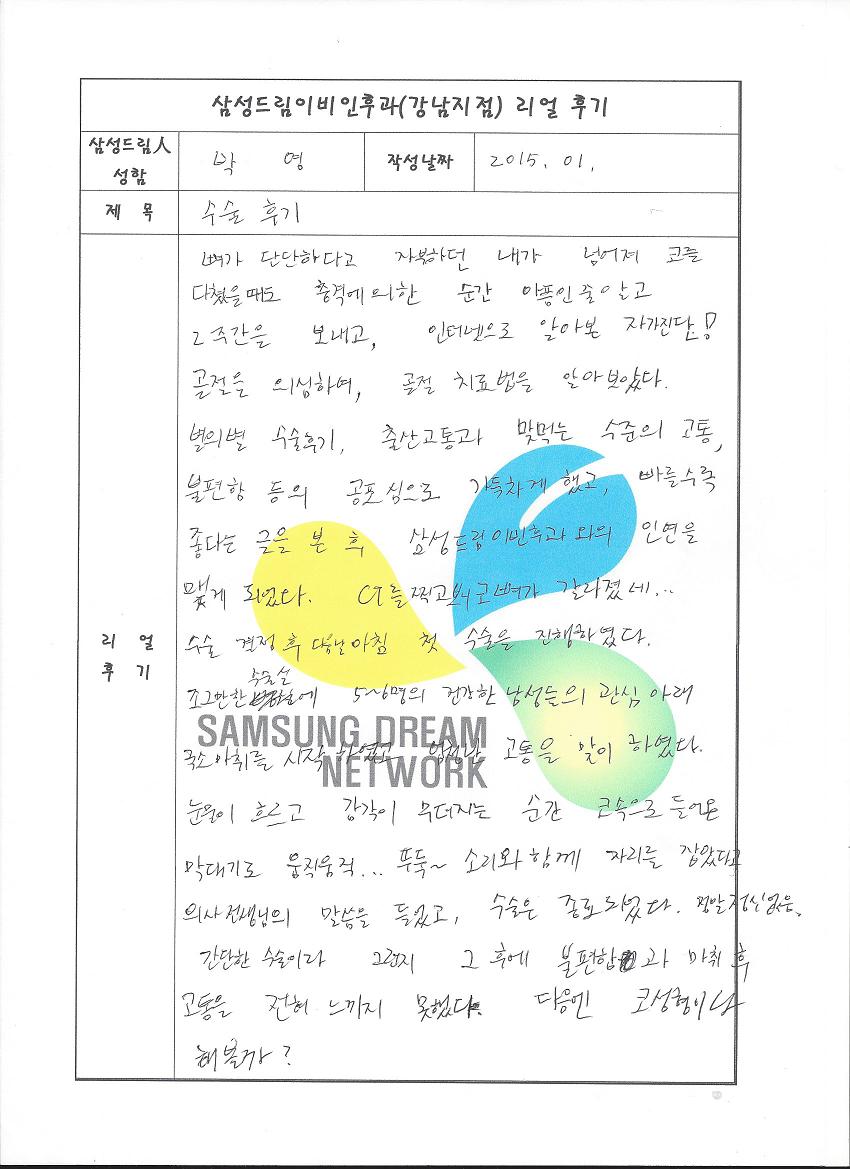 삼성드림이비인후과(강남지점) 리얼 후기
삼성드림人
성함
박 영
작성날짜
2015. 01.
제 목
수술 후기
리 얼
후 기
뼈가 단단하다고 자부하던 내가 넘어져 코를
다쳤을때도 충격에의한 순간 아픔인줄알고
2주간을 보내고, 인터넷으로 알아본 자가진단!
골절을 의심하며, 골절 치료법을 알아보았다.
별의별 수술후기, 출산고통과 맞먹는 수준의 고통,
불편함 등의 공포심으로 가득차게 했고, 빠를수록
좋다는 글을 본 후 삼성드림이빈후과와의 인연을
맺게 되었다. CT를찍고보니 코뼈가 갈라졌네...
수술 결정 후 다음날아침 첫 수술을 진행하였다.
조그만한 수술실에 5~6명의 건강한 남성들의 관심 아래
국소마취를 시작하였고 엄청난 고통을 맞이 하였다.
눈물이 흐르고 감각이 무더지는 순간 코속으로 들어온
막대기로 움직움직... 뚜둑~ 소리와함께 자리를 잡았다고
의사선생님의 말씀을 들었고, 수술은 종료되었다. 정말정신없는,
간단한 수술이라 그런지 그 후에 불편함과 마취 후
고통을 전혀 느끼지 못했다. 다음엔 코성형이나
해볼까?
SAMSUNG DREAM
NETWORK